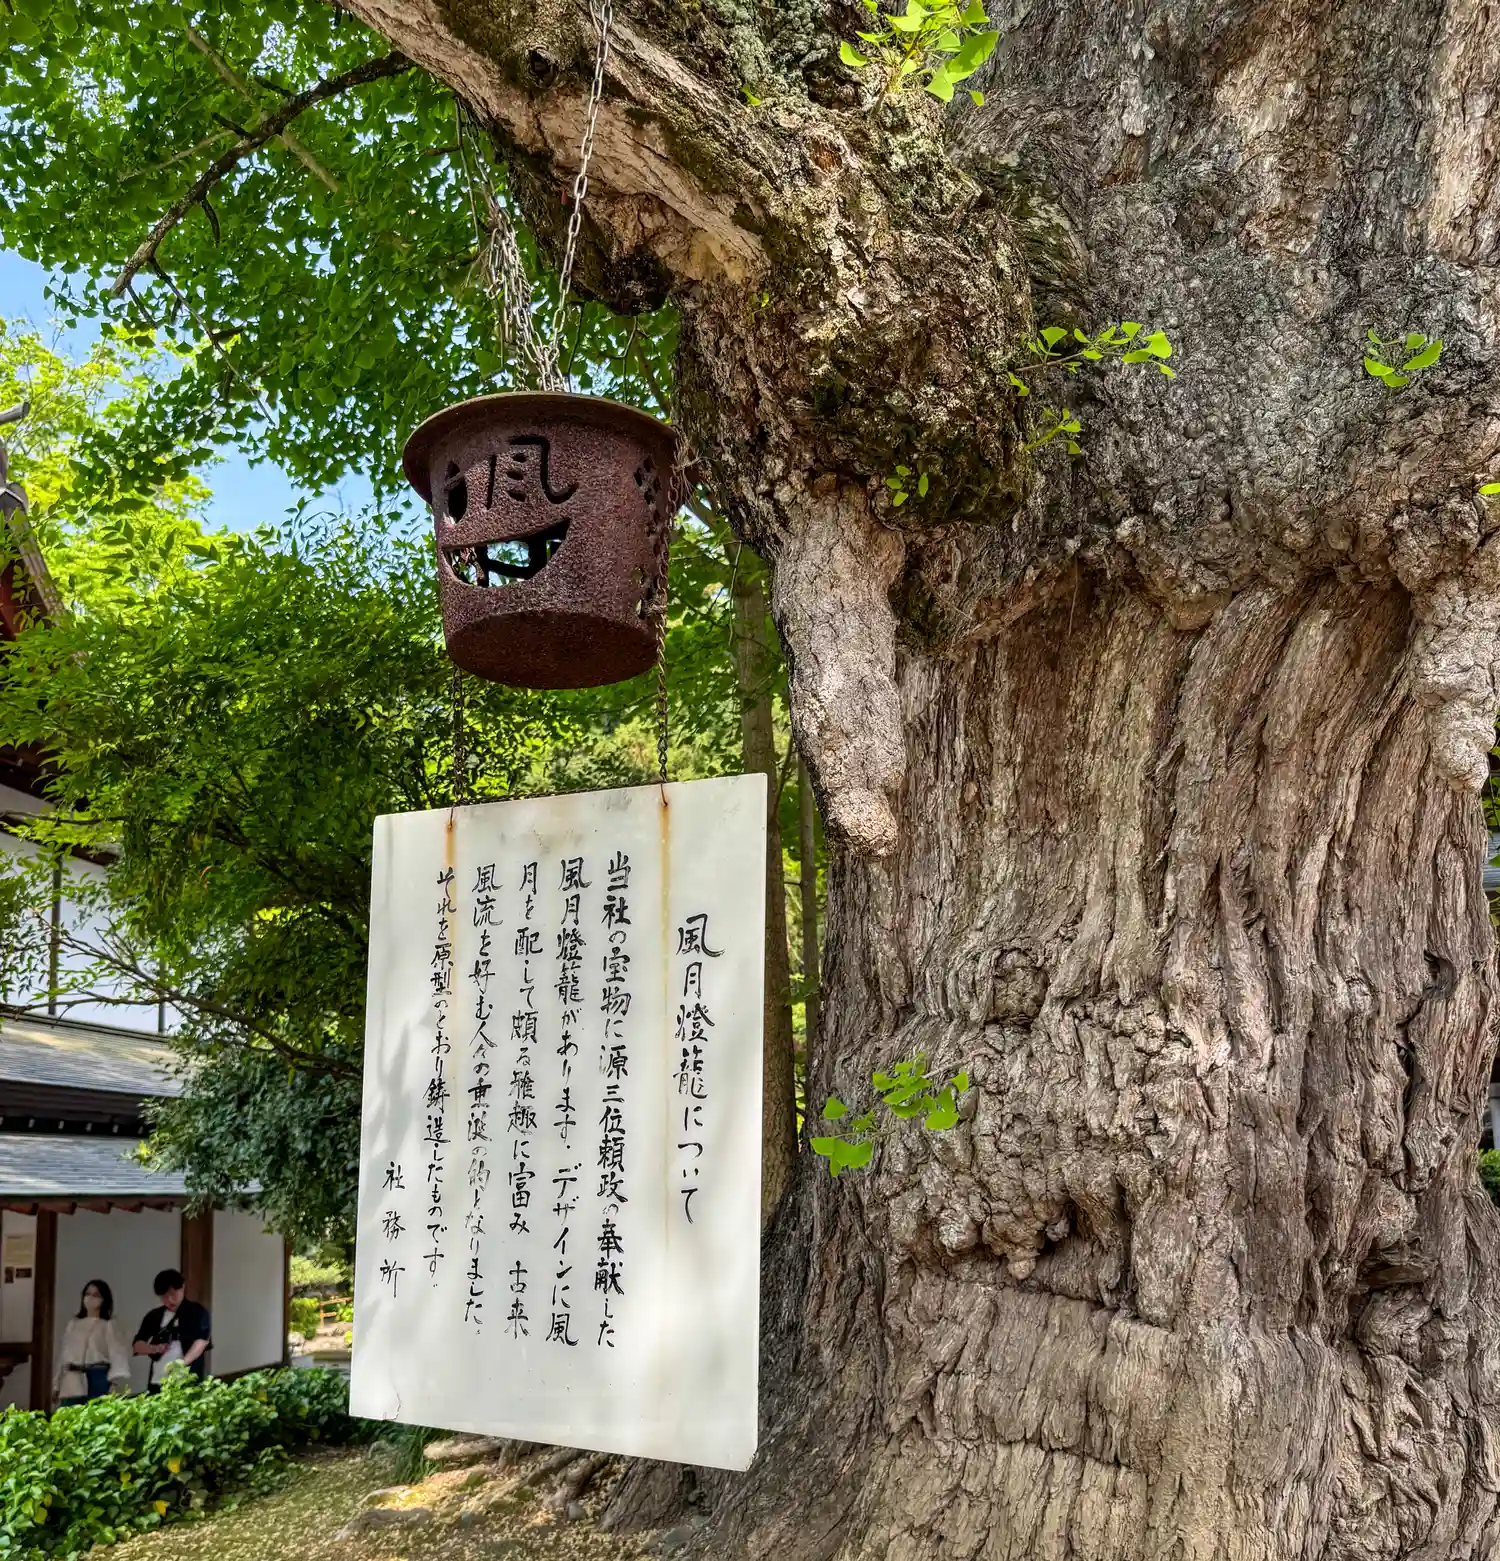 風
風月燈籠について
当社の宝物に源三位頼政の奉献した
風月燈籠があります。デザインに風
月を配して頗る雅趣に富み 古来
風流を好む人々の垂涎の的となりました。
それを原型のとおり鋳造したものです。
社務所